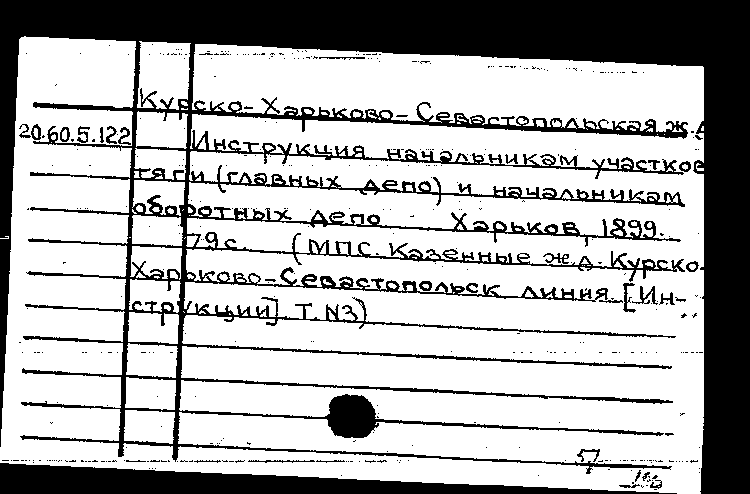 Курско-Харьково-Севастопольская ж.д
20.60.5.122 Инструкция начальникам участков
тяги (главных депо) и начальникам
оборотных депо Харьков, 1899.
79 с. (МПС. Казенные ж.д. Курско-
Харьково-Севастопольск линия. [Ин-
струкции]. Т. №3)
57